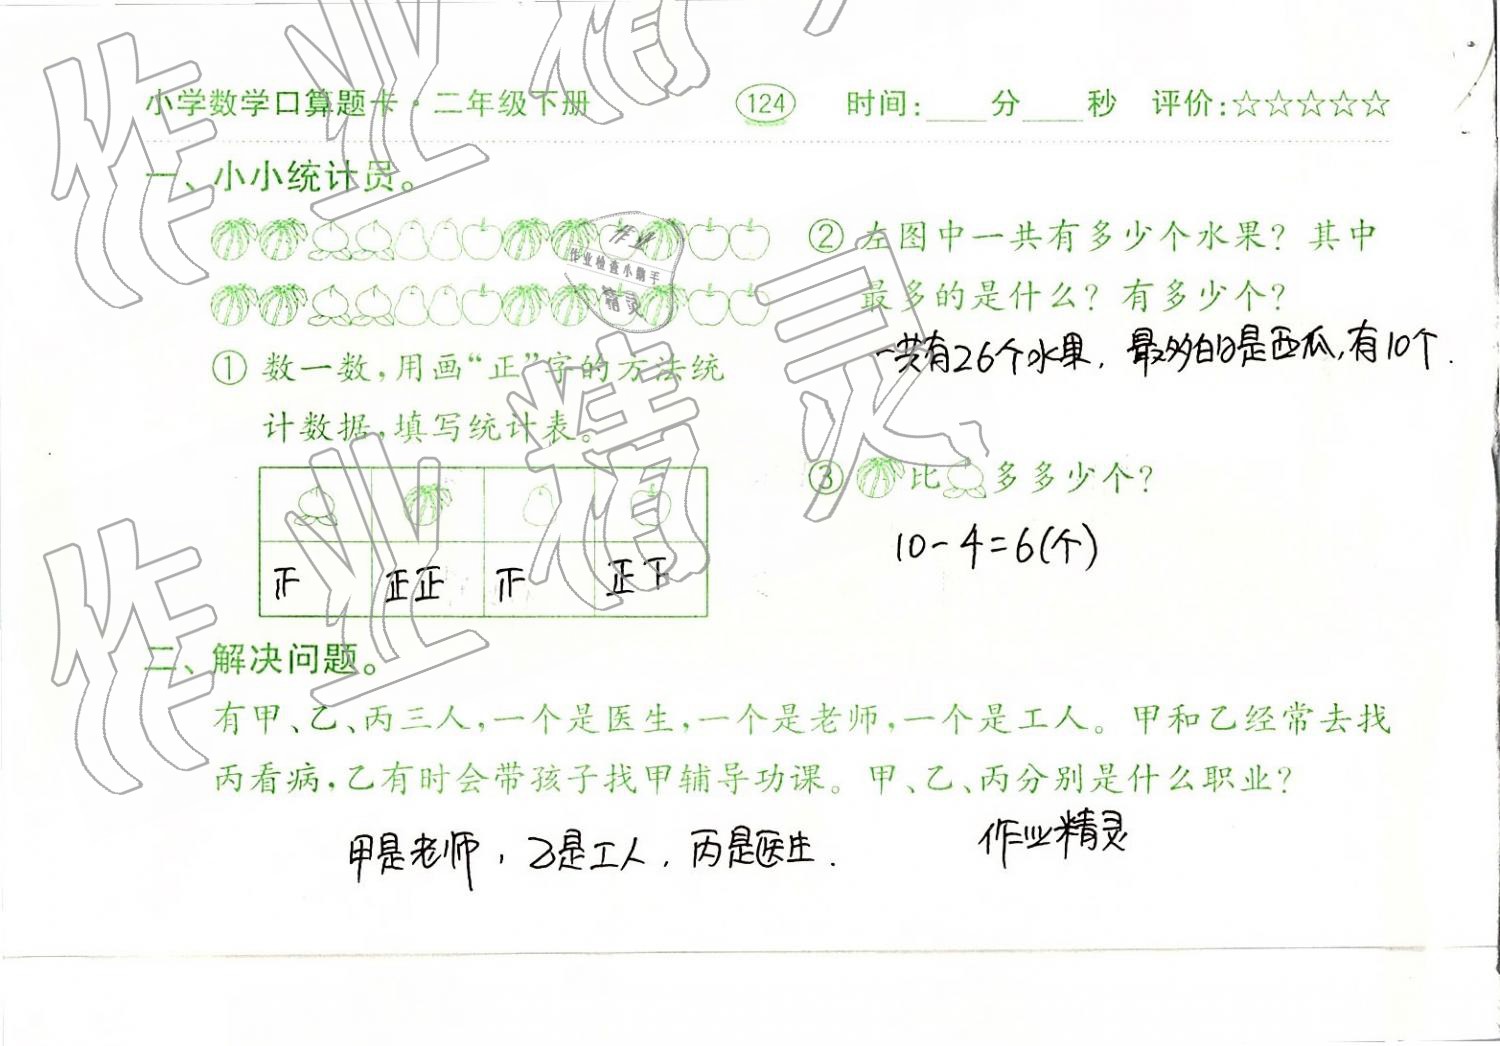 小学数学口算题卡·二年级下册 124 时间:____分____秒 评价:☆☆☆☆☆
一、小小统计员。
① 数一数,用画“正”字的方法统
计数据,填写统计表。
正正 正
② 左图中一共有多少个水果? 其中
最多的是什么? 有多少个?
一共有26个水果. 最多的是西瓜,有10个.
③ 比 多多少个?
10-4=6(个)
二、解决问题。
有甲、乙、丙三人,一个是医生,一个是老师,一个是工人。甲和乙经常去找
丙看病,乙有时会带孩子找甲辅导功课。甲、乙、丙分别是什么职业?
甲是老师, 乙是工人, 丙是医生. 作业精灵
作业精灵
作业精灵
作业
作业检查小助手
精灵